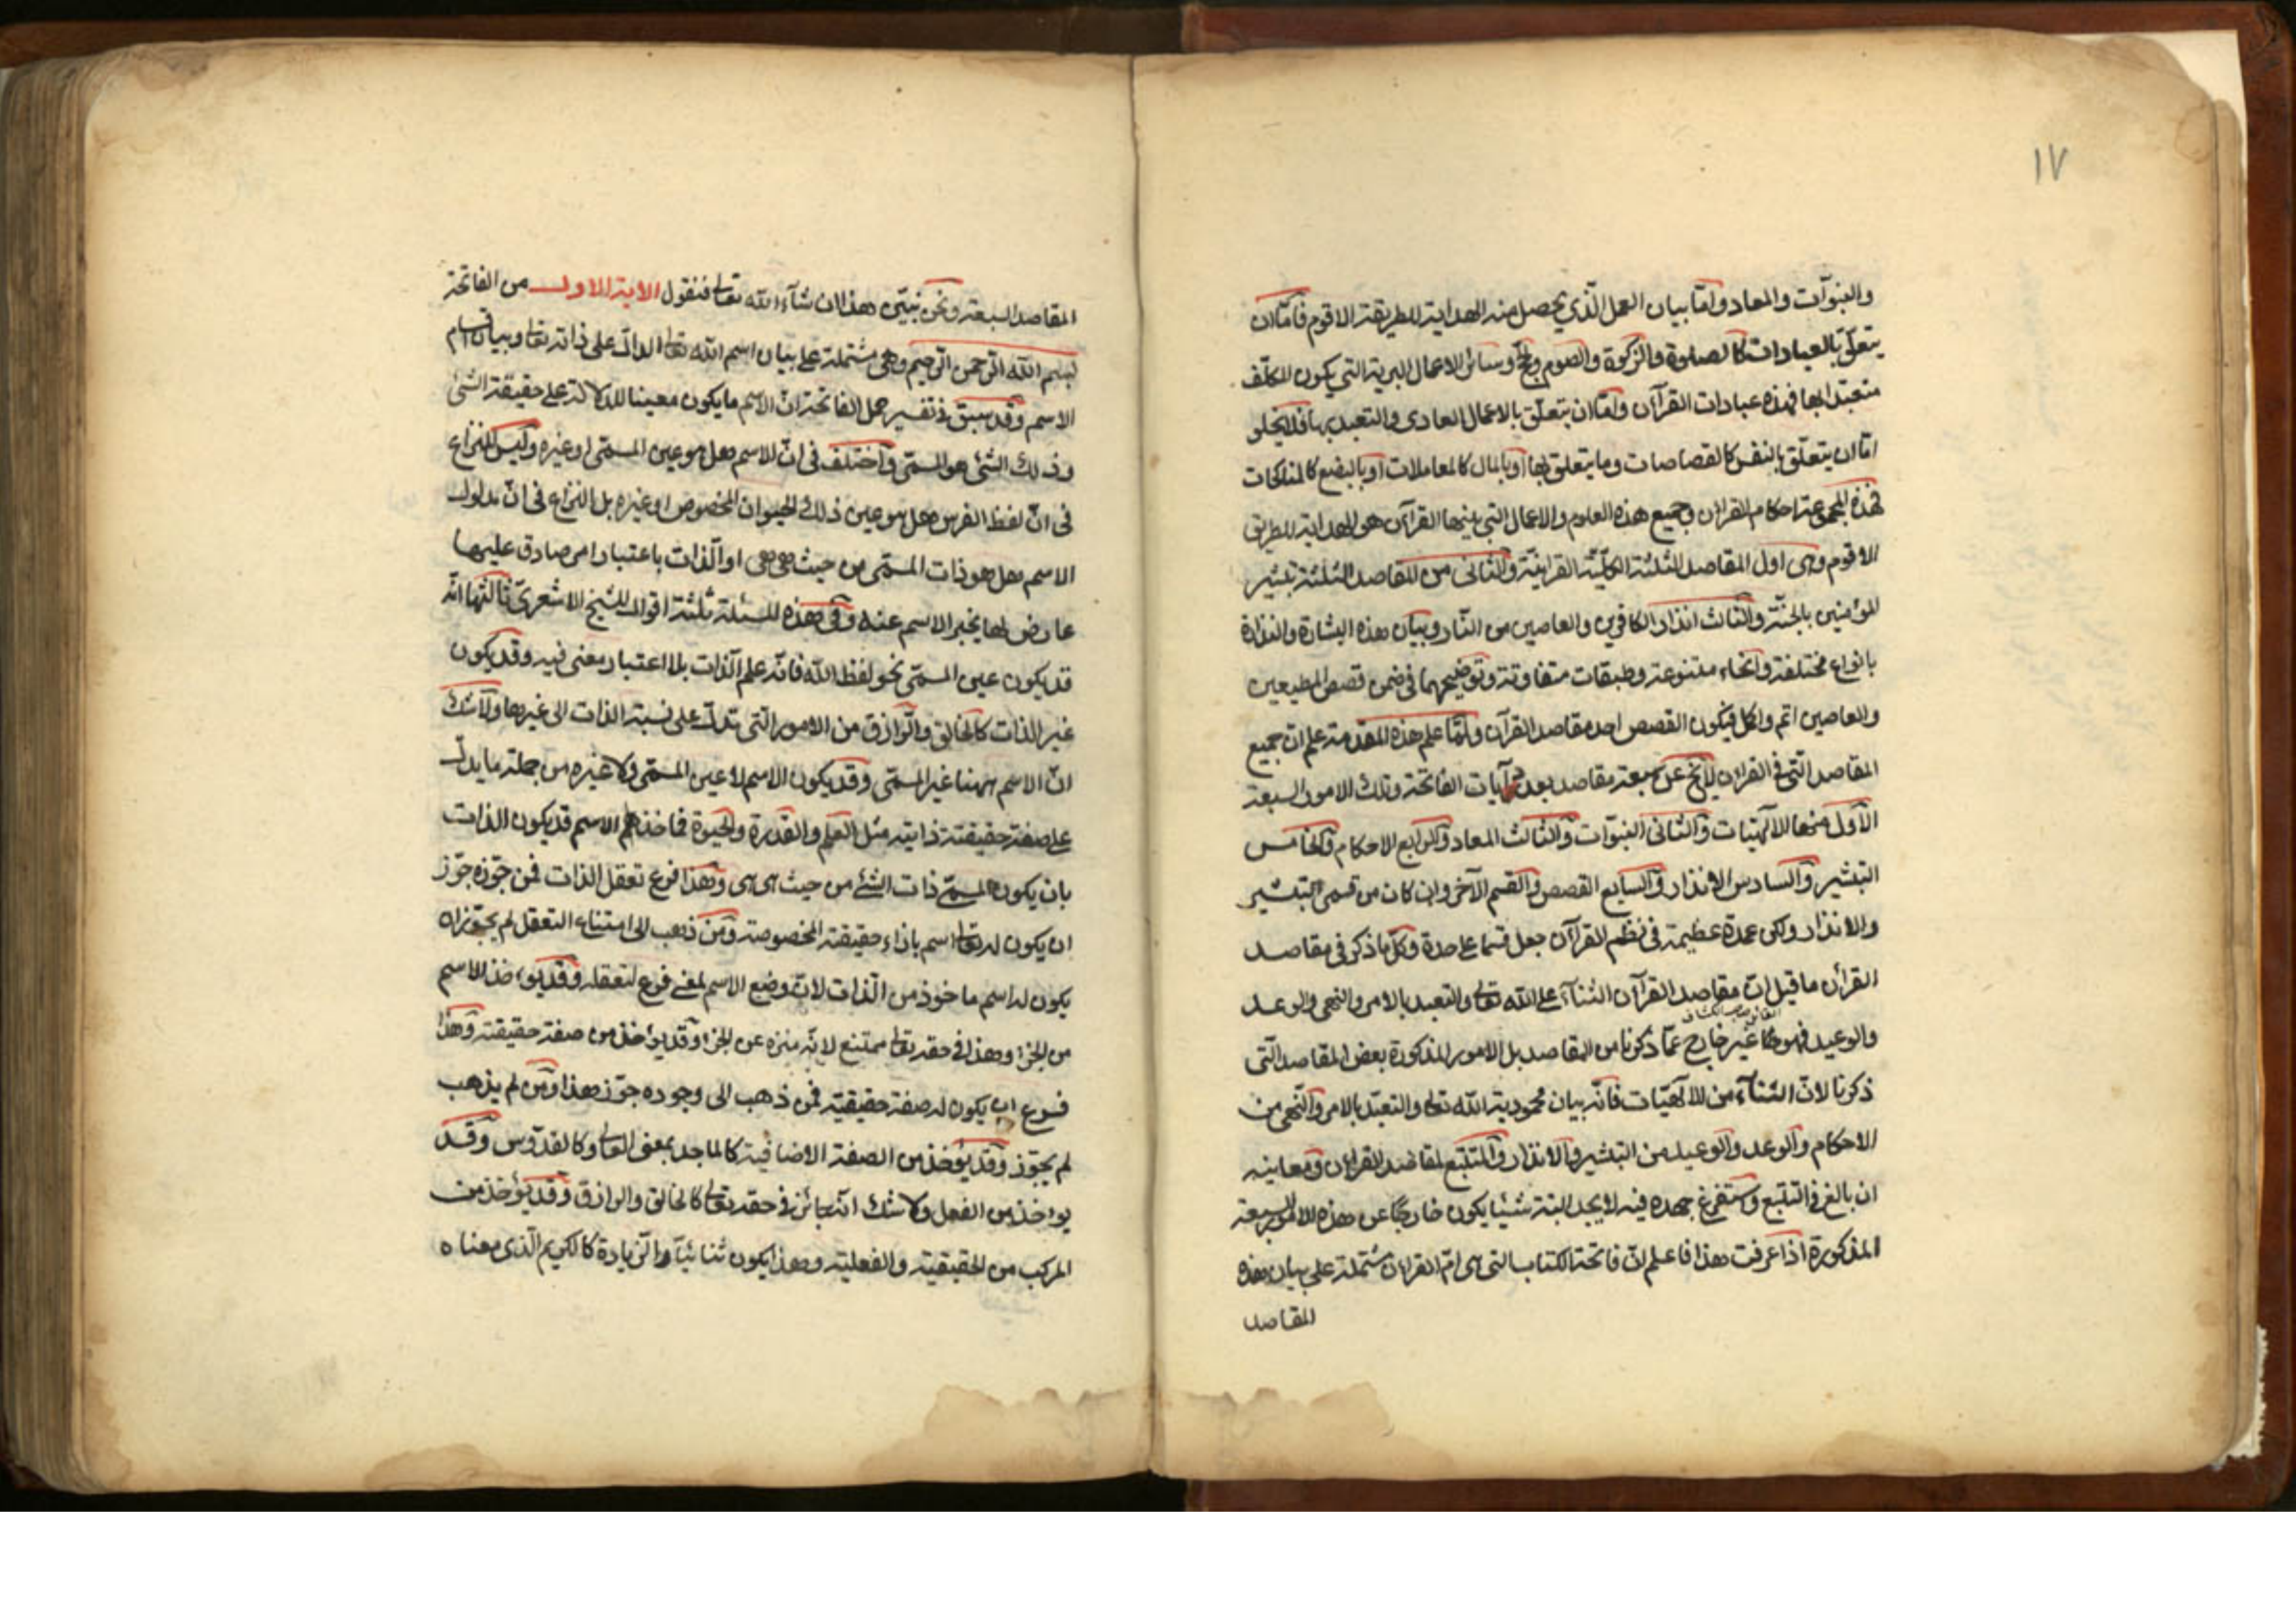 ١٧
والنبوات والمعاد واما بيان العمل الذي يحصل منه الهداية للطريقة الاقوم فاما ان
يتعلق بالعبادات كالصلوة والزكوة والصوم والحج وسائر الاعمال البرية التي يكون المكلف
متعبدا بها فهذه عبادات القرآن واما ان يتعلق بالاعمال العادى والتعبد بها فلا يخلو
اما ان يتعلق بالنفس كالقصاصات وما يتعلق بها او بالمال كالمعاملات او بالبضع كالمناكحات
فهذه المجموعة احكام القرآن وجميع هذه العلوم والاعمال التي بينها القرآن هو الهداية للطريق
الاقوم وهى اول المقاصد الثلثة الكلية القرانية والثانى من المقاصد الثلثة تبشير
المؤمنين بالجنة والثالث انذار الكافرين والعاصين من النار وبيان هذه البشارة والنذارة
بانواع مختلفة وانحاء متنوعة وطبقات متفاوتة وتوضيحهما فى ضمن قصص المطيعين
والعاصين اتم واكمل فيكون القصص احد مقاصد القرآن ولما علم هذه المقدمة علم ان جميع
المقاصد التى في القرآن لا يخ عن سبعة مقاصد بعدد آيات الفاتحة وتلك الامور السبعة
الاول منها الالهيات والثانى النبوات والثالث المعاد والرابع الاحكام والخامس
التبشير والسادس الانذار والسابع القصص والقسم الآخر وان كان من قسمى التبشير
والانذار ولكن عمدة عظيمة فى نظم القرآن جعل قسما على حدة وكل ما ذكر فى مقاصد
القرآن ما قيل ان مقاصد القرآن الثناء على الله تعالى والتعبد بالامر والنهى والوعد
القائل صاحب الكشاف
والوعيد فهو كا غير خارج عما ذكرنا من المقاصد بل الامور المذكورة بعض المقاصد التى
ذكرنا لان الثناء من الالهيات فانه بيان محمودية الله تعالى والتعبد بالامر والنهى من
الاحكام والوعد والوعيد من التبشير والانذار والمتتبع لمقاصد القرآن ومعاينه
ان بالغ في التتبع واستفرغ جهده فيه لا يجد البتة شيئا يكون خارجا عن هذه الامور السبعة
المذكورة اذا عرفت هذا فاعلم ان فاتحة الكتاب التى هى ام القرآن مشتملة على بيان هذه
المقاصد
المقاصد السبعة ونحن نبين هذا ان شاء الله تعالى فنقول الاية الاولى من الفاتحة
بسم الله الرحمن الرحيم وهى مشتملة على بيان اسم الله تعالى الدال على ذاته تعالى وبيان اقسام
الاسم وقد سبق فى تفسير جمل الفاتحة ان الاسم ما يكون معينا للدلالة على حقيقة الشئ
وذلك الشئ هو المسمى واختلف فى ان الاسم هل هو عين المسمى او غيره وليس النزاع
فى ان لفظ الفرس هل هو عين ذلك الحيوان المخصوص او غيره بل النزاع فى ان مدلول
الاسم هل هو ذات المسمى من حيث هى هى او الذات باعتبار امر صادق عليها
عارض لها يخبر الاسم عنه وفى هذه المسئلة ثلثة اقوال للشيخ الاشعرى ثالثها انه
قد يكون عين المسمى نحو لفظ الله فانه علم الذات بلا اعتبار معنى فيه وقد يكون
غير الذات كالخالق والرازق من الامور التى تدل على نسبة الذات الى غيرها ولا شك
ان الاسم ههنا غير المسمى وقد يكون الاسم لا عين المسمى ولا غيره من جملة ما يدل
على صفة حقيقية ذاتية مثل العلم والقدرة والحيوة فماخذ الاسم قد يكون الذات
بان يكون المسمى ذات الشئ من حيث هى هى وهذا فرع تعقل الذات فمن جوزه جوز
ان يكون له تعالى اسم بازاء حقيقته المخصوصة ومن ذهب الى امتناع التعقل لم يجوز ان
يكون له اسم ماخوذ من الذات لان وضع الاسم لمعنى فرع لتعقله وقد يؤخذ الاسم
من الجزء وهذا فى حقه تعالى ممتنع لانه منزه عن الجزء وقد يؤخذ من صفة حقيقية وهذا
فرع ان يكون له صفة حقيقية فمن ذهب الى وجوده جوز هذا ومن لم يذهب
لم يجوز وقد يؤخذ من الصفة الاضافية كالماجد بمعنى العالى وكالقدوس وقد
يؤخذ من الفعل ولا شك انه جائز فى حقه تعالى كالخالق والرازق وقد يؤخذ من
المركب من الحقيقية والفعلية وهذا يكون ثنائيا والزيادة كالكريم الذى معناه